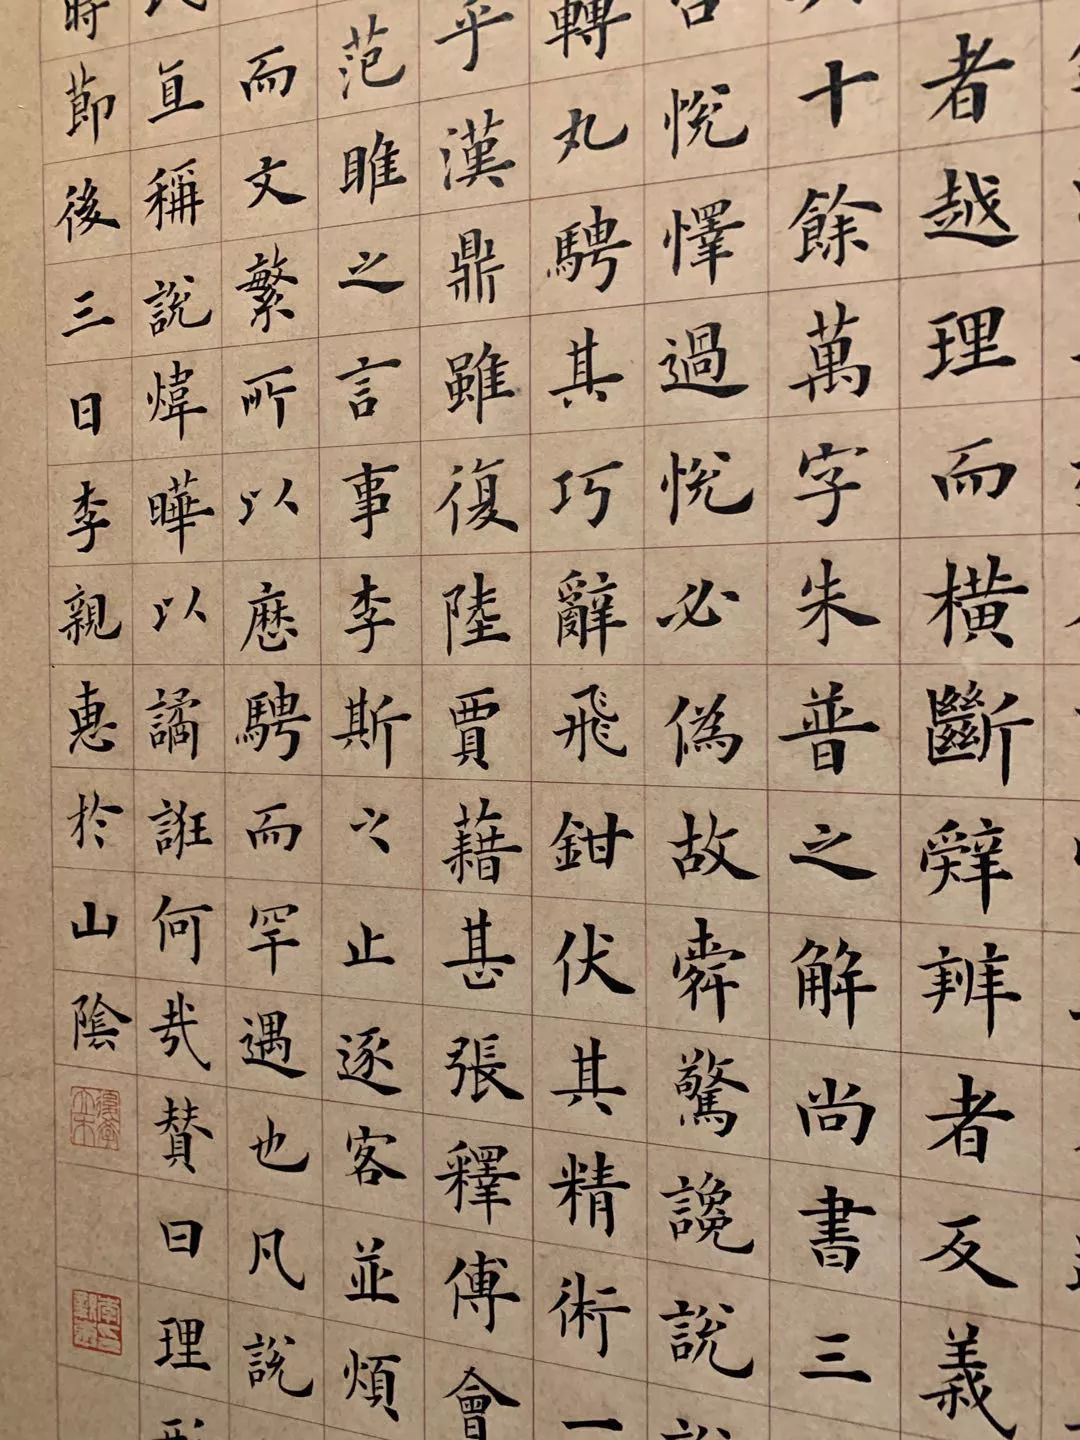 者越理而橫斷辭辨者反義
十餘萬字朱普之解尚書三
悅懌過悅必偽故舜驚讒說
轉丸騁其巧辭飛鉗伏其精術一
乎漢鼎雖復陸賈藉甚張釋傅會
范雎之言事李斯之止逐客並煩
而文繁所以歷騁而罕遇也凡說
直稱說煒曄以譎誑何哉贊曰理形
時節後三日李親惠於山陰